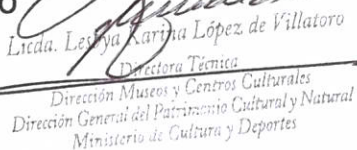 Licda. Lesbya Karina López de Villatoro
Directora Técnica
Dirección Museos y Centros Culturales
Dirección General del Patrimonio Cultural y Natural
Ministerio de Cultura y Deportes